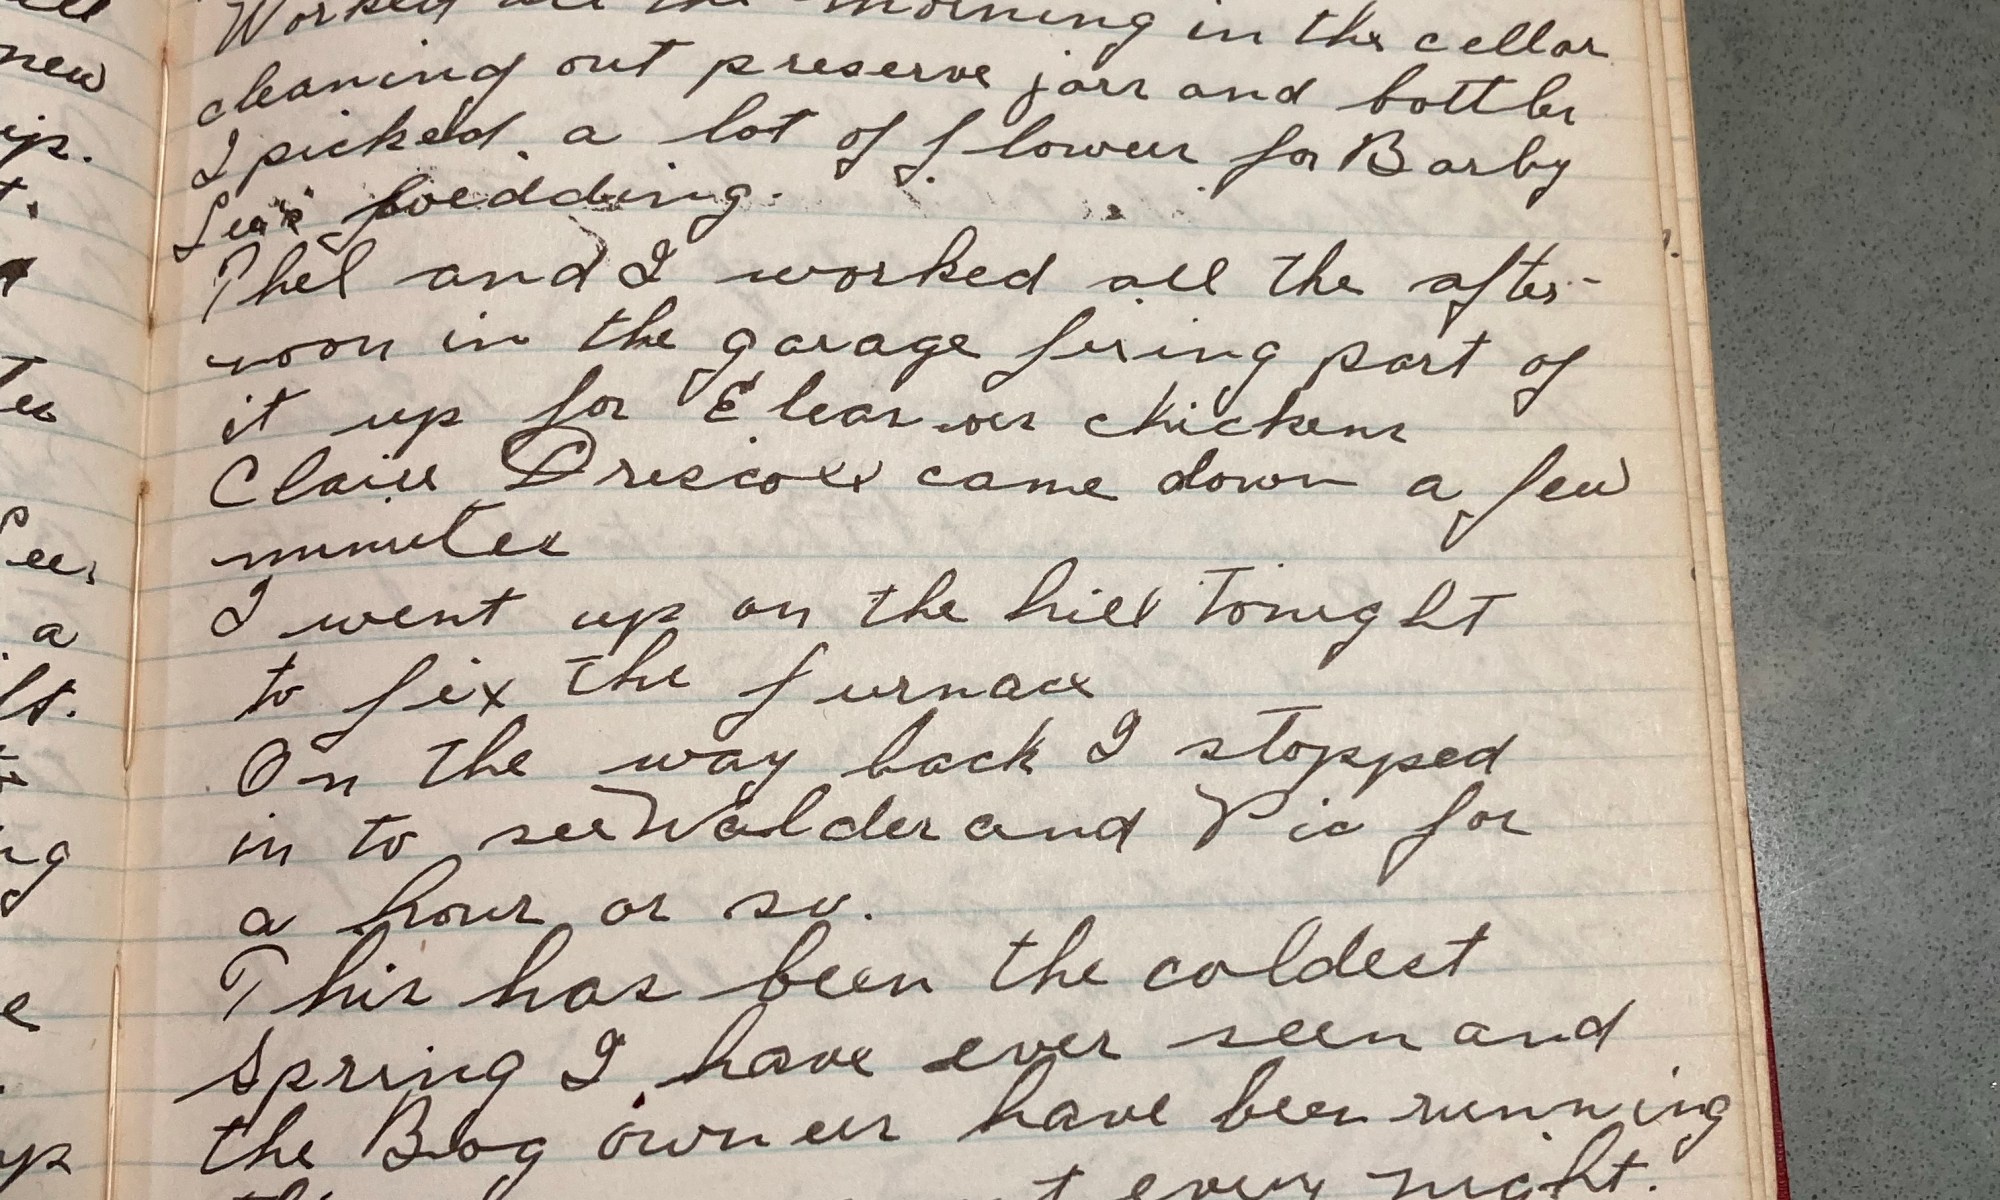 Worked all the morning in the cellar
cleaning out preserve jars and bottles
I picked a lot of flowers for Barby
Lea's wedding.
Thel and I worked all the after-
noon in the garage fixing part of
it up for Eleanors chickens
Claire Driscoll came down a few
minutes
I went up on the hill tonight
to fix the furnace
On the way back I stopped
in to see Walder and Pic for
a hour or so.
This has been the coldest
spring I have ever seen and
the Bog owners have been running
every night.
new
a